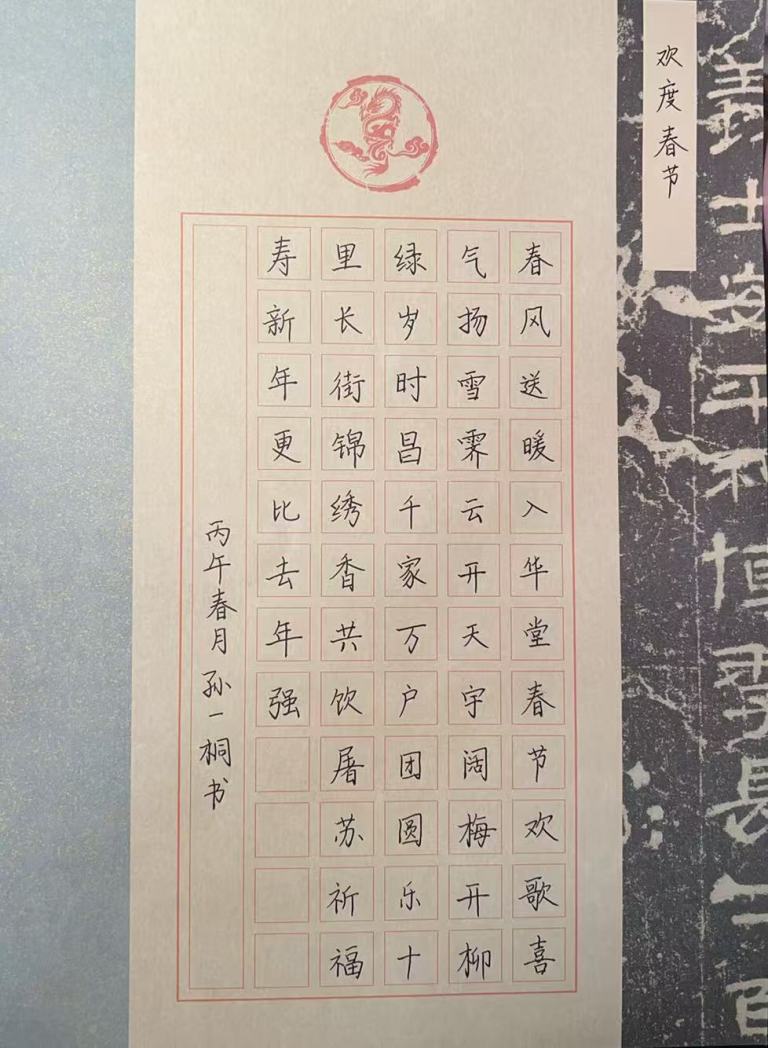 欢度春节
春风送暖入华堂春节欢歌喜
气扬雪霁云开天宇阔梅开柳
绿岁时昌千家万户团圆乐十
里长街锦绣香共饮屠苏祈福
寿新年更比去年强
丙午春月孙一桐书